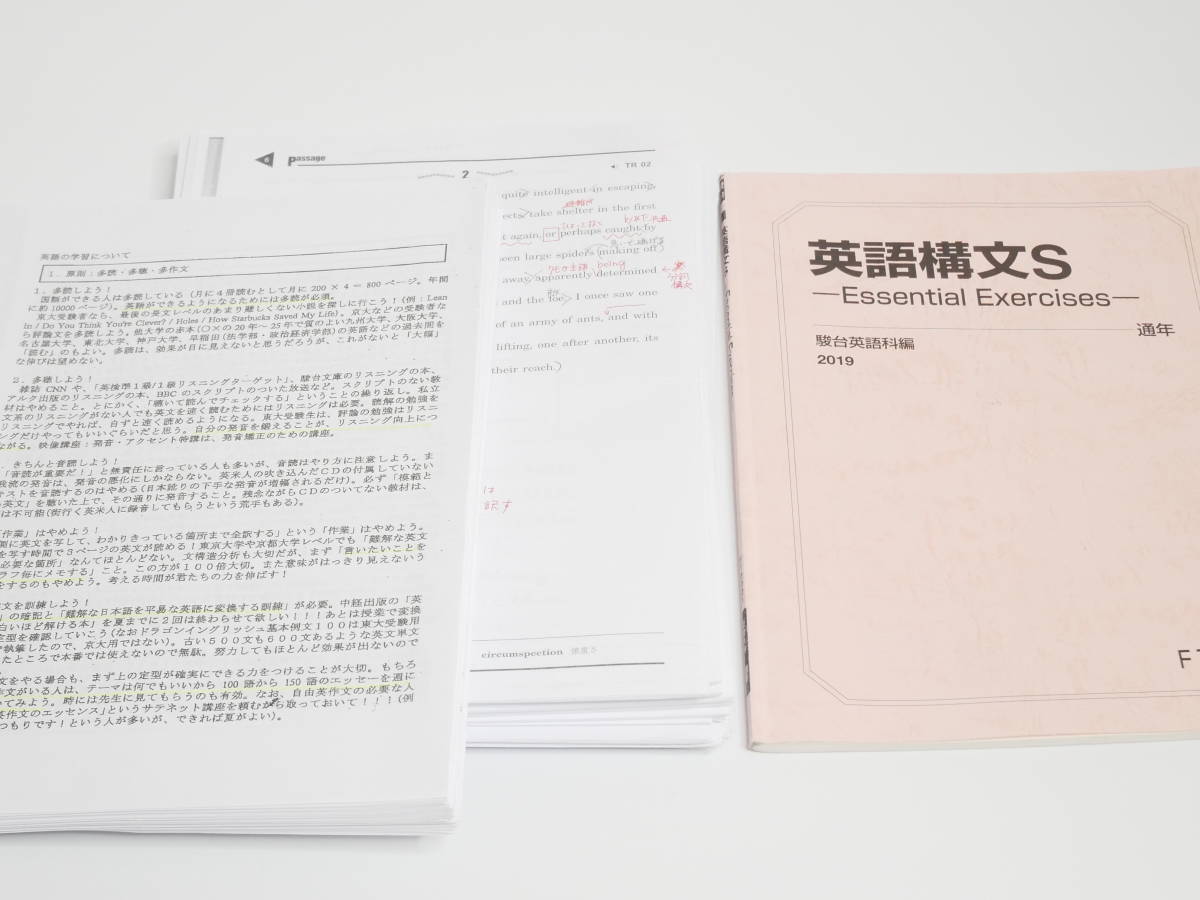 英語の学習について
1.原則:多読・多聴・多作文
1.多読しよう!
国語ができる人は多読している(月に4冊読むとして月に 200 × 4 = 800 ページ。年間
に約 10000 ページ)。英語ができるようになるためには多読が必須。
東大受験者なら、最後の長文レベルのあまり難しくない小説を探しに行こう!(例:Lean
in / Do You Think You're Clever? / Holes / How Starbucks Saved My Life)。京大などの受験者な
ら評論文を多読しよう。他大学の赤本(○×の20年~25年で質のよい九州大学、大阪大学、
名古屋大学、東北大学、神戸大学、早稲田(法学部・政治経済学部)の英語などの過去問を
「読む」のもよい。多読は、効果が目に見えないと思うだろうが、これがないと「大幅」
な伸びは望めない。
2.多聴しよう!
雑誌 CNN や、「英検準1級/1級リスニングターゲット」、駿台文庫のリスニングの本、
アルク出版のリスニングの本、BBC のスクリプトのついた放送など。スクリプトのない教
材はやめること。とにかく、「聴いて読んでチェックする」ということの繰り返し。私立
文系のリスニングがない人でも英文を速く読むためにはリスニングは必要。読解の勉強を
リスニングでやれば、自ずと速く読めるようになる。東大受験生は、評論の勉強はリスニ
ングだけやってもいいぐらいだと思う。自分の発音を鍛えることが、リスニング向上につ
ながる。映像講座:発音・アクセント特講は、発音矯正のための講座。
きちんと音読しよう!
「音読が重要だ!」と無責任に言っている人も多いが、音読はやり方に注意しよう。ま
我流の発音は、発音の悪化にしかならない。英米人の吹き込んだCDの付属していない
テストを音読するのはやめる(日本訛りの下手な発音が増幅されるだけ)。必ず「模範と
英文」を聴いた上で、その通りに発音すること。残念ながらCDのついてない教材は、
は不可能(街行く英米人に録音してもらうという荒手もある)。
作業」はやめよう!
側に英文を写して、わかりきっている箇所まで全訳する」という「作業」はやめよう。
を写す時間で3ページの英文が読める!東京大学や京都大学レベルでも「難解な英文
必要な箇所」なんてほとんどない。文構造分析も大切だが、まず「言いたいことを
ラフ毎にメモする」こと。この方が100倍大切。また意味がはっきり見えないう
をするのもやめよう。考える時間が君たちの力を伸ばす!
文を訓練しよう!
」の暗記と「難解な日本語を平易な英語に変換する訓練」が必要。中経出版の「英
白いほど解ける本」を夏までに2回は終わらせて欲しい!!!あとは授業で変換
定型を確認していこう(なおドラゴンイングリッシュ基本例文100は東大受験用
執筆したので、京大用ではない)。古い500文も600文あるような英文単文
たところで本番では使えないので無駄。努力してもほとんど効果が出ないので
文をやる場合も、まず上の定型が確実にできる力をつけることが大切。もちろ
作文がいる人は、テーマは何でもいいから 100 語から 150 語のエッセーを週に
いてみよう。時には先生に見てもらうのも有効。なお、自由英作文の必要な人
英作文のエッセンス」というサテネット講座を頼むから取っておいて!!!(例
つもりです!という人が多いが、できれば夏がよい)。
6 Passage
2
TR 02
quite intelligent in escaping,
ects, take shelter in the first
t again, or perhaps caught by
been large spiders making off
away, apparently determined
being
and the foe. I once saw one
of an army of ants, and with
lifting, one after another, its
their reach.
は
訳す
circumspection 慎重さ
英語構文S
—Essential Exercises—
通年
駿台英語科編
2019
F